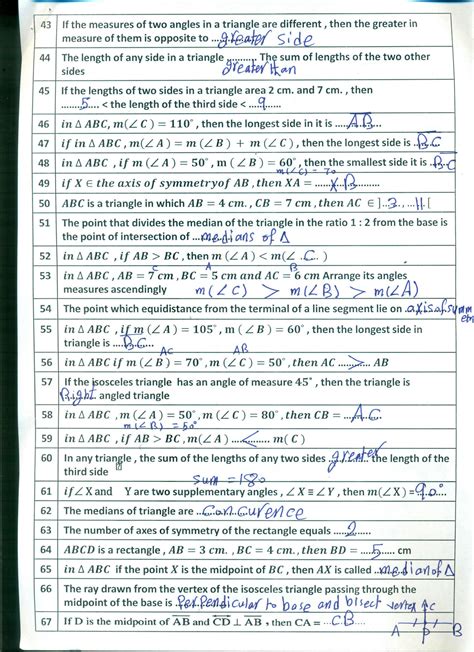 43 If the measures of two angles in a triangle are different , then the greater in
measure of them is opposite to ...greater side
44 The length of any side in a triangle ......... The sum of lengths of the two other
sides greater than
45 If the lengths of two sides in a triangle area 2 cm. and 7 cm. , then
........5.... < the length of the third side <...9......
46 in Δ ABC, m(∠ C) = 110°, then the longest side in it is .....AB...
47 if in Δ ABC, m(∠ A) = m (∠ B) + m (∠ C), then the longest side ..BC
48 in Δ ABC , if m (∠ A) = 50°, m (∠ B) = 60°, then the smallest side it is ..B.C
m(∠C) = 70
49 if X ∈ the axis of symmetryof AB , then XA = ......X.B........
50 ABC is a triangle in which AB = 4 cm. , CB = 7 cm , then AC ∈ ]..3.., ..11.[
51 The point that divides the median of the triangle in the ratio 1 : 2 from the base is
the point of intersection of ...medians of Δ
52 in Δ ABC , if AB > BC, then m(∠ A) < m(∠ .C.. )
53 in Δ ABC , AB = 7 cm , BC = 5 cm and AC = 6 cm Arrange its angles
C A B
measures ascendingly m(∠C) > m(∠B) > m(∠A)
54 The point which equidistance from the terminal of a line segment lie on axis of symm
etry
55 in Δ ABC , if m (∠ A) = 105°, m (∠ B) = 60°, then the longest side in
triangle is ....B.C....
AC AB
56 in Δ ABC if m (∠ B) = 70°, m (∠ C) = 50°, then AC .....>.... AB
57 If the isosceles triangle has an angle of measure 45° , then the triangle is
Right angled triangle
58 in Δ ABC , m (∠ A) = 50°, m(∠ C) = 80°, then CB = ...A.C.
m(∠B) = 50°
59 in Δ ABC , if AB > BC, m(∠ A) ....<....... m( C)
60 In any triangle , the sum of the lengths of any two sides ..greater... the length of the
third side
sum = 180
61 if∠ X and Y are two supplementary angles , ∠ X ≡ ∠ Y , then m(∠ X) =..90°...
62 The medians of triangle are ..Concurence
63 The number of axes of symmetry of the rectangle equals .....2.....
64 ABCD is a rectangle , AB = 3 cm. , BC = 4 cm., then BD = ....5..... cm
65 in Δ ABC if the point X is the midpoint of BC , then AX is called ..median of Δ
66 The ray drawn from the vertex of the isosceles triangle passing through the
midpoint of the base is Perpendicular to base and bisect vertex
67 If D is the midpoint of AB and CD ⊥ AB , then CA = ...CB....
C
A D B